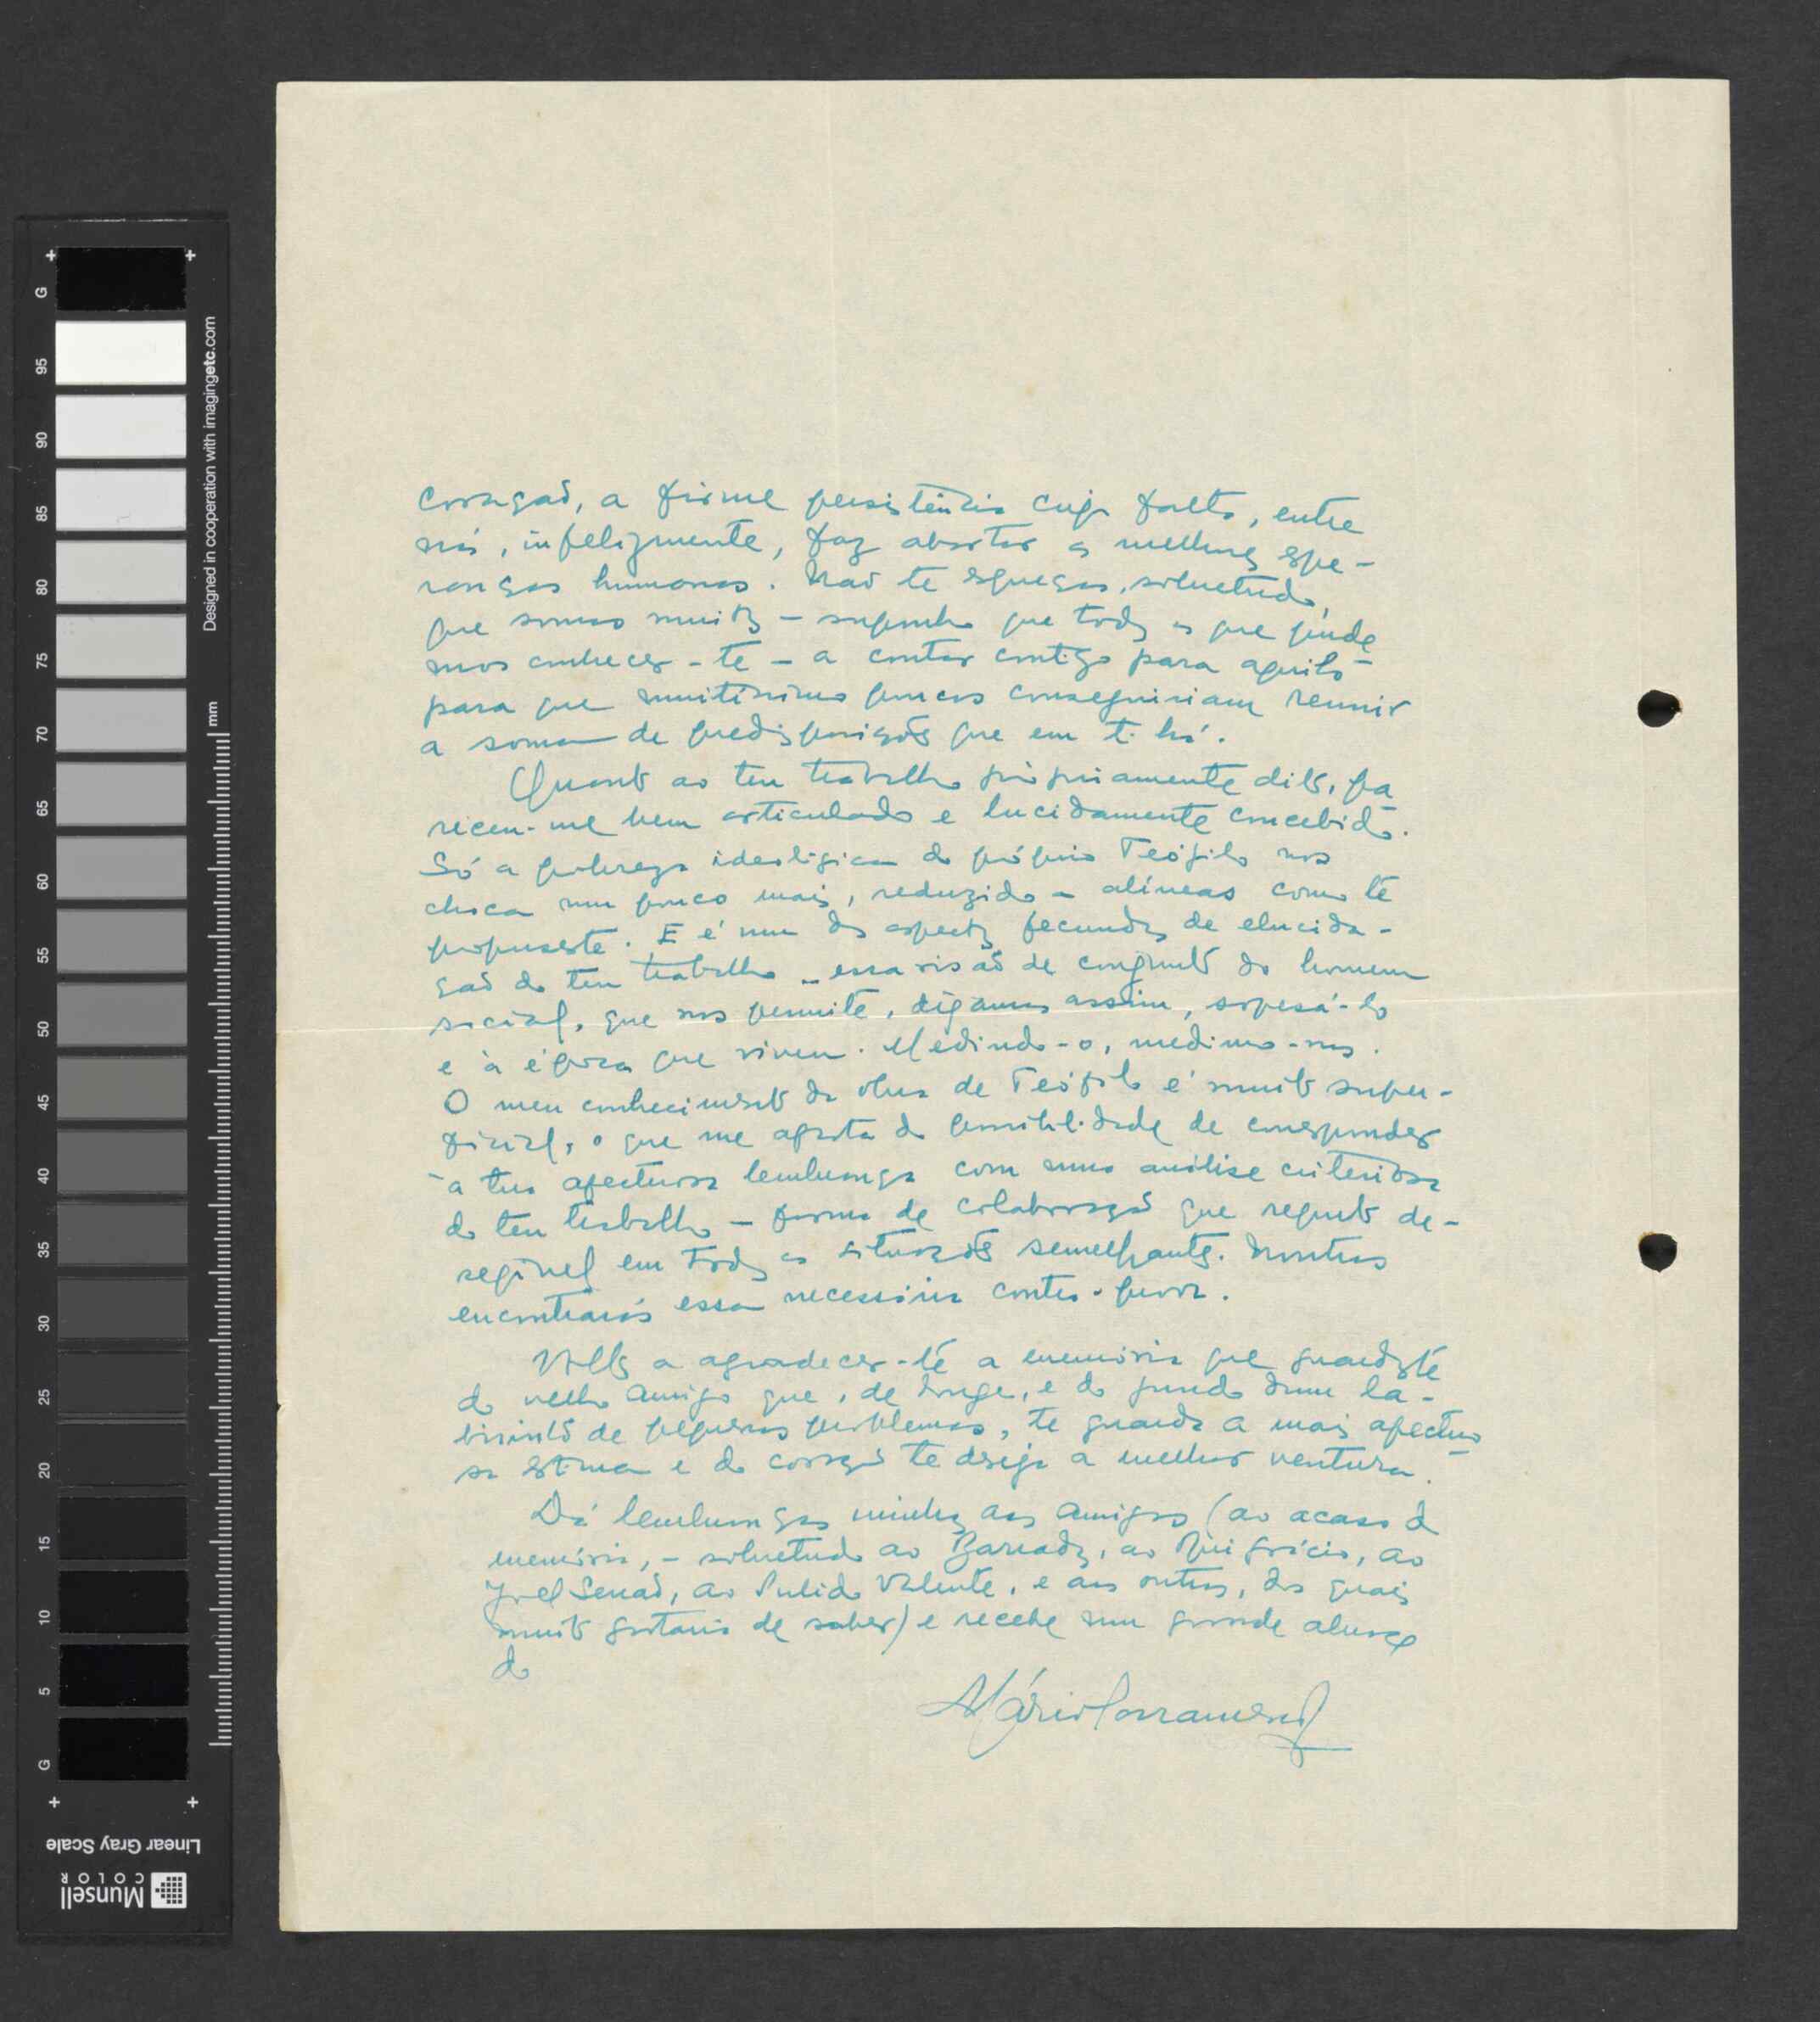 coração, a firme persistência cuja falta, entre
nós, infelizmente, faz abortar as melhores espe-
ranças humanas. Não te esqueças, sobretudo,
que somos muitos - suponho que todos os que pude
mos conhecer-te - a contar contigo para aquilo
para que muitíssimo poucos conseguiriam reunir
a soma de predisposições que em ti há.
Quanto ao teu trabalho propriamente dito, pa
receu-me bem articulado e lucidamente concebido.
Só a pobreza ideológica do próprio Teófilo nos
choca um pouco mais, reduzida a alíneas como te
propuseste. E é um dos aspectos fecundos de elucida-
ção do teu trabalho - essa visão de conjunto do homem
social, que nos permite, digamos assim, sopesá-lo
e à época que viveu. Medindo-o, medimo-nos.
O meu conhecimento da obra de Teófilo é muito super-
ficial, o que me afasta da possibilidade de corresponder
à tua afectuosa lembrança com uma análise criteriosa
do teu trabalho - forma de colaboração que reputo de-
sejável em todas as situações semelhantes. Noutros
encontrarás essa necessária contra-prova.
Volto a agradecer-te a memória que guardaste
do velho amigo que, de longe, e do fundo dum la-
birinto de pequenos problemas, te guarda a mais afectuo
sa estima e do coração te deseja a melhor ventura.
Dá lembranças minhas aos amigos (ao acaso da
memória, - sobretudo ao Barradas, ao Rui Grácio, ao
Joel Serrão, ao Pulido Valente, e aos outros, dos quais
muito gostaria de saber) e recebe um grande abraço
do
Mário Sacramento
G 95 90 85 80 75 70 65 60 55 50 45 40 35 30 25 20 15 10 5 G
mm
Designed in cooperation with imagingetc.com
Linear Gray Scale
Munsell
COLOR